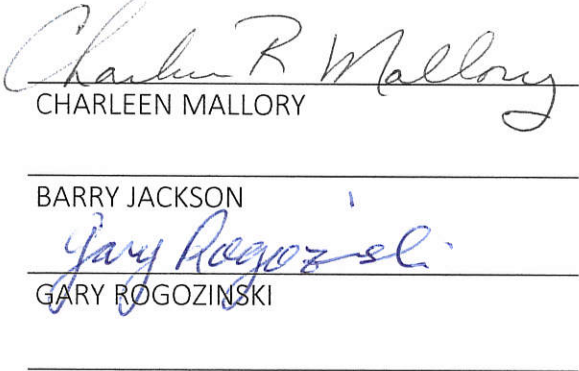 Charleen R Mallory
CHARLEEN MALLORY
BARRY JACKSON
Gary Rogozinski
GARY ROGOZINSKI